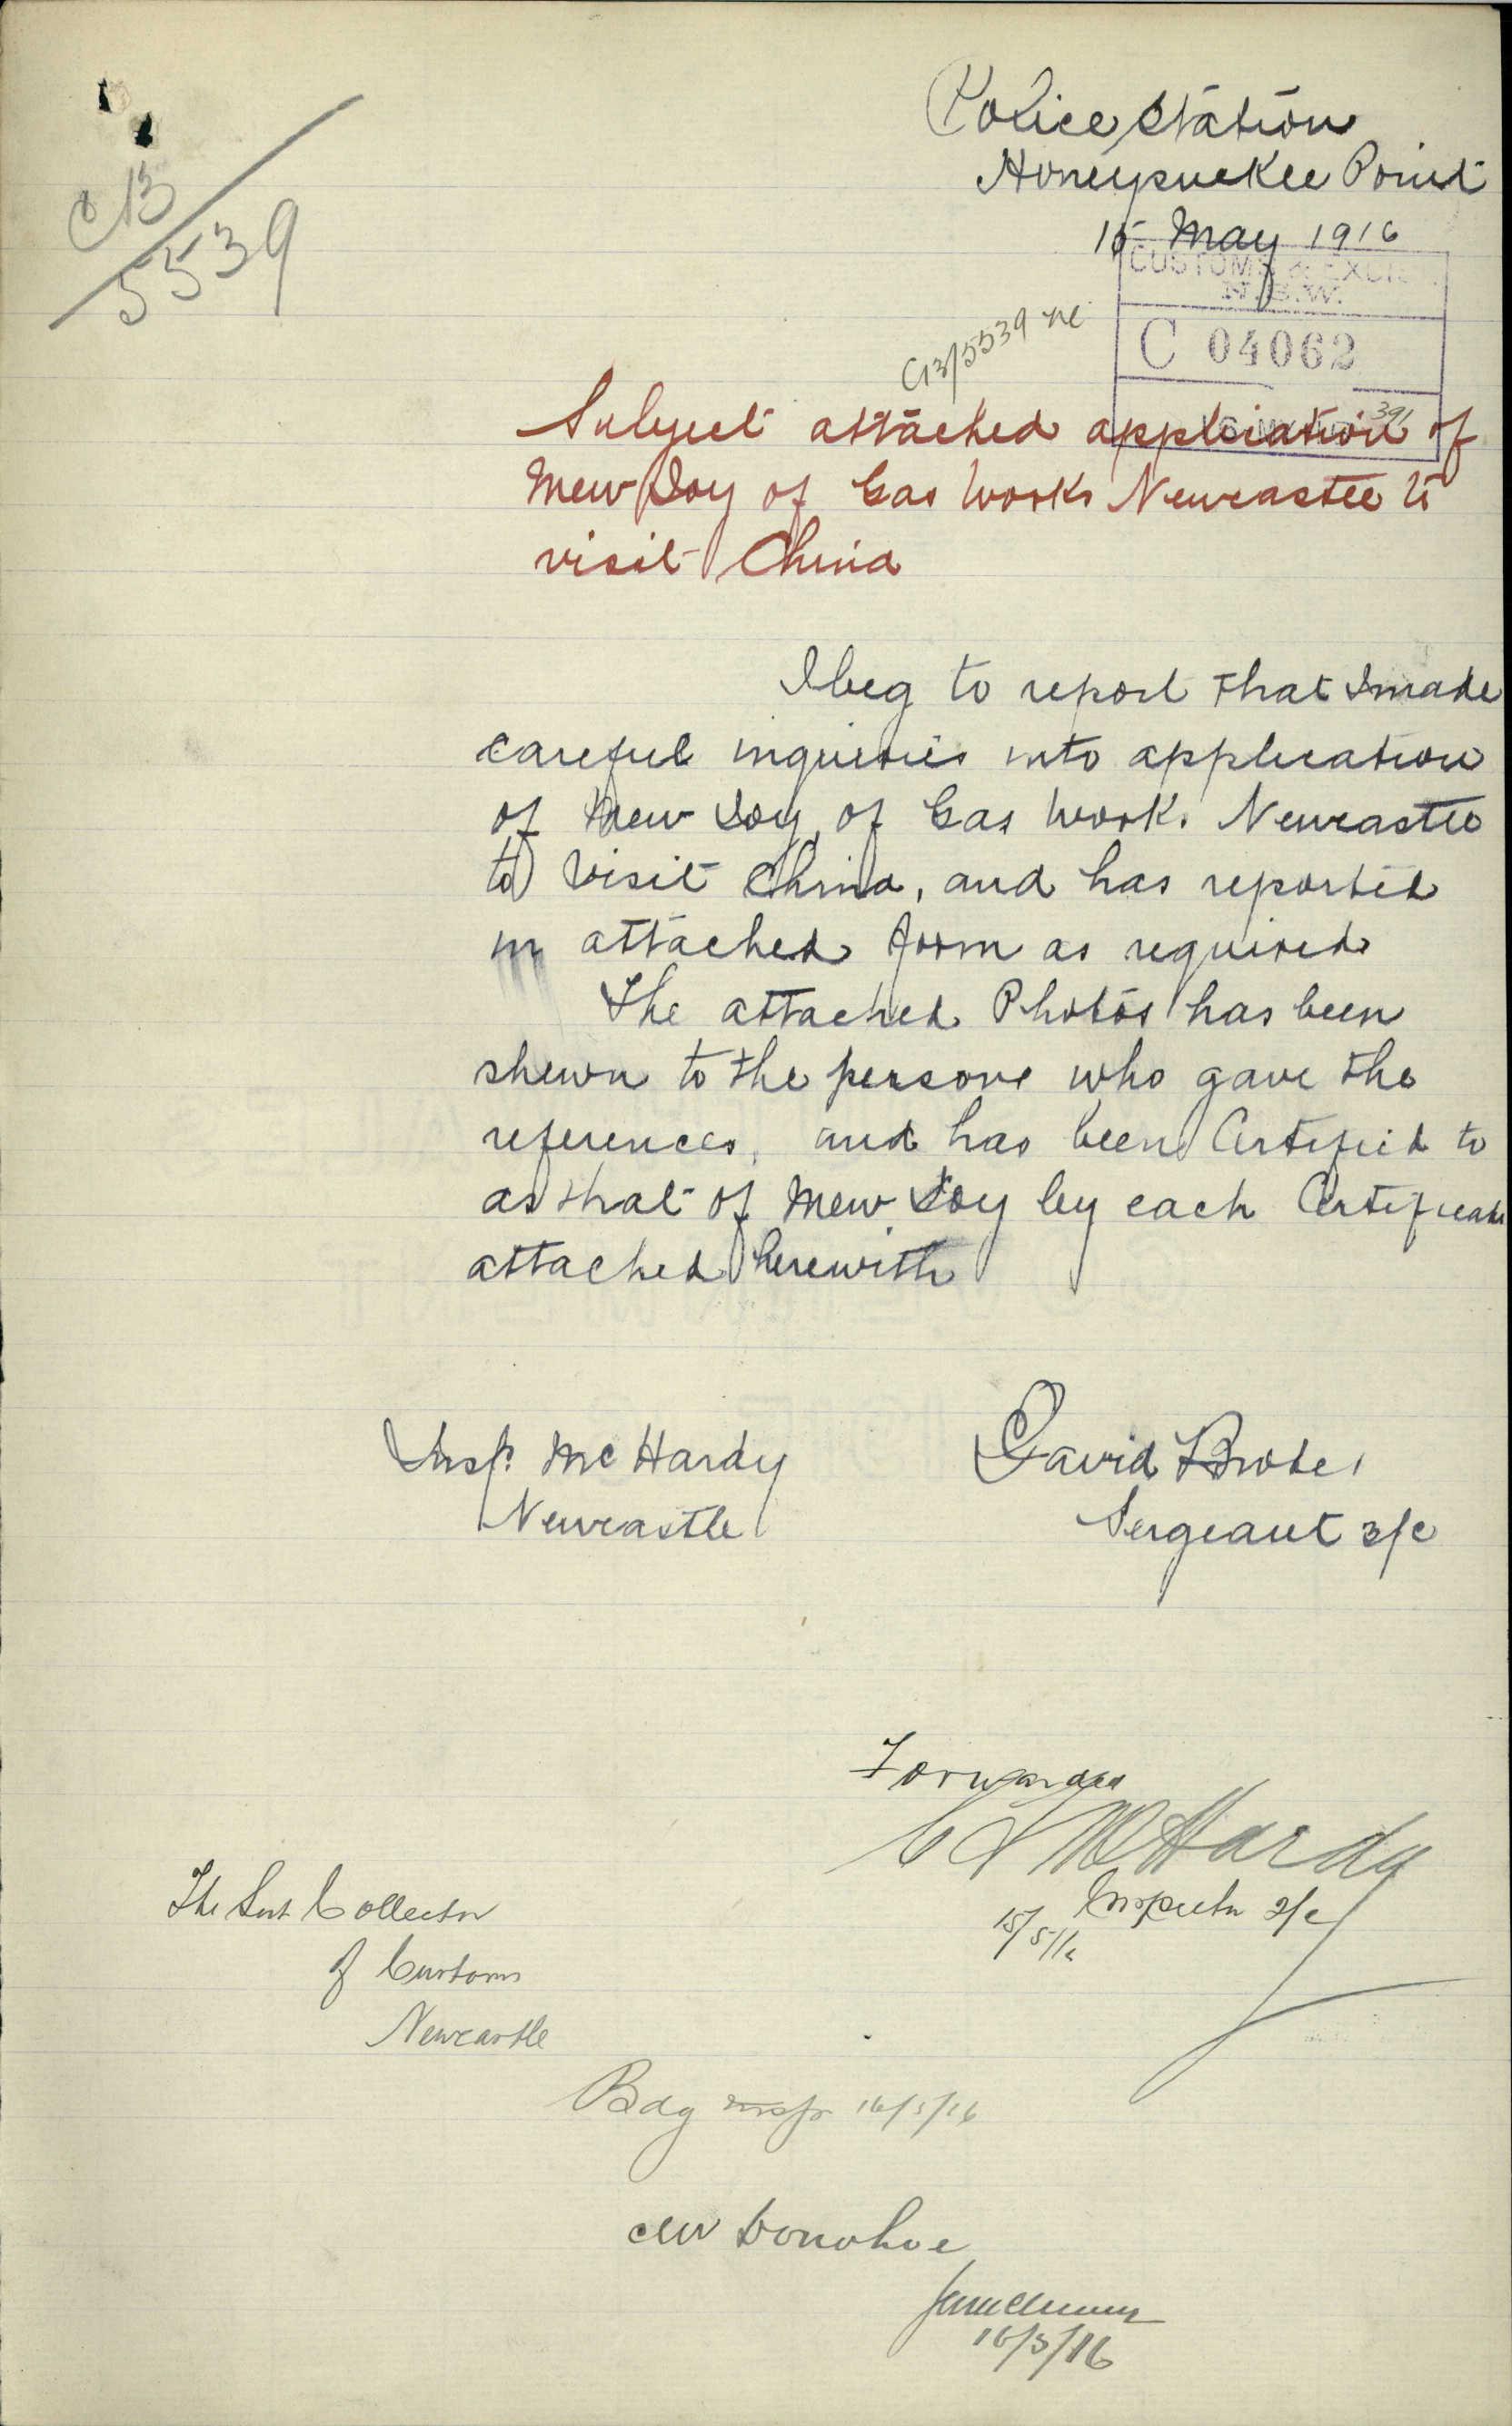 Police Station
Honeysuckle Point
15 May 1916
C13
5539
CUSTOMS & EXCISE
N.S.W.
C 04062
C13/5539
391
Subject attached application of
Mew Soy of Gas Works Newcastle to
visit China
I beg to report that I made
careful inquiries into application
of Mew Soy, of Gas Works Newcastle
to visit China, and has reported
in attached form as required
The attached Photos has been
shewn to the persons who gave the
references, and has been Certified to
as that of Mew Soy by each Certificate
attached herewith
Insp. McHardy
Newcastle
David
Sergeant 3/c
Forwarded
McHardy
Inspector 2/c
15/5/16
The Sub Collector
of Customs
Newcastle
Bdg Inspr 16/5/16
Donohoe
16/5/16